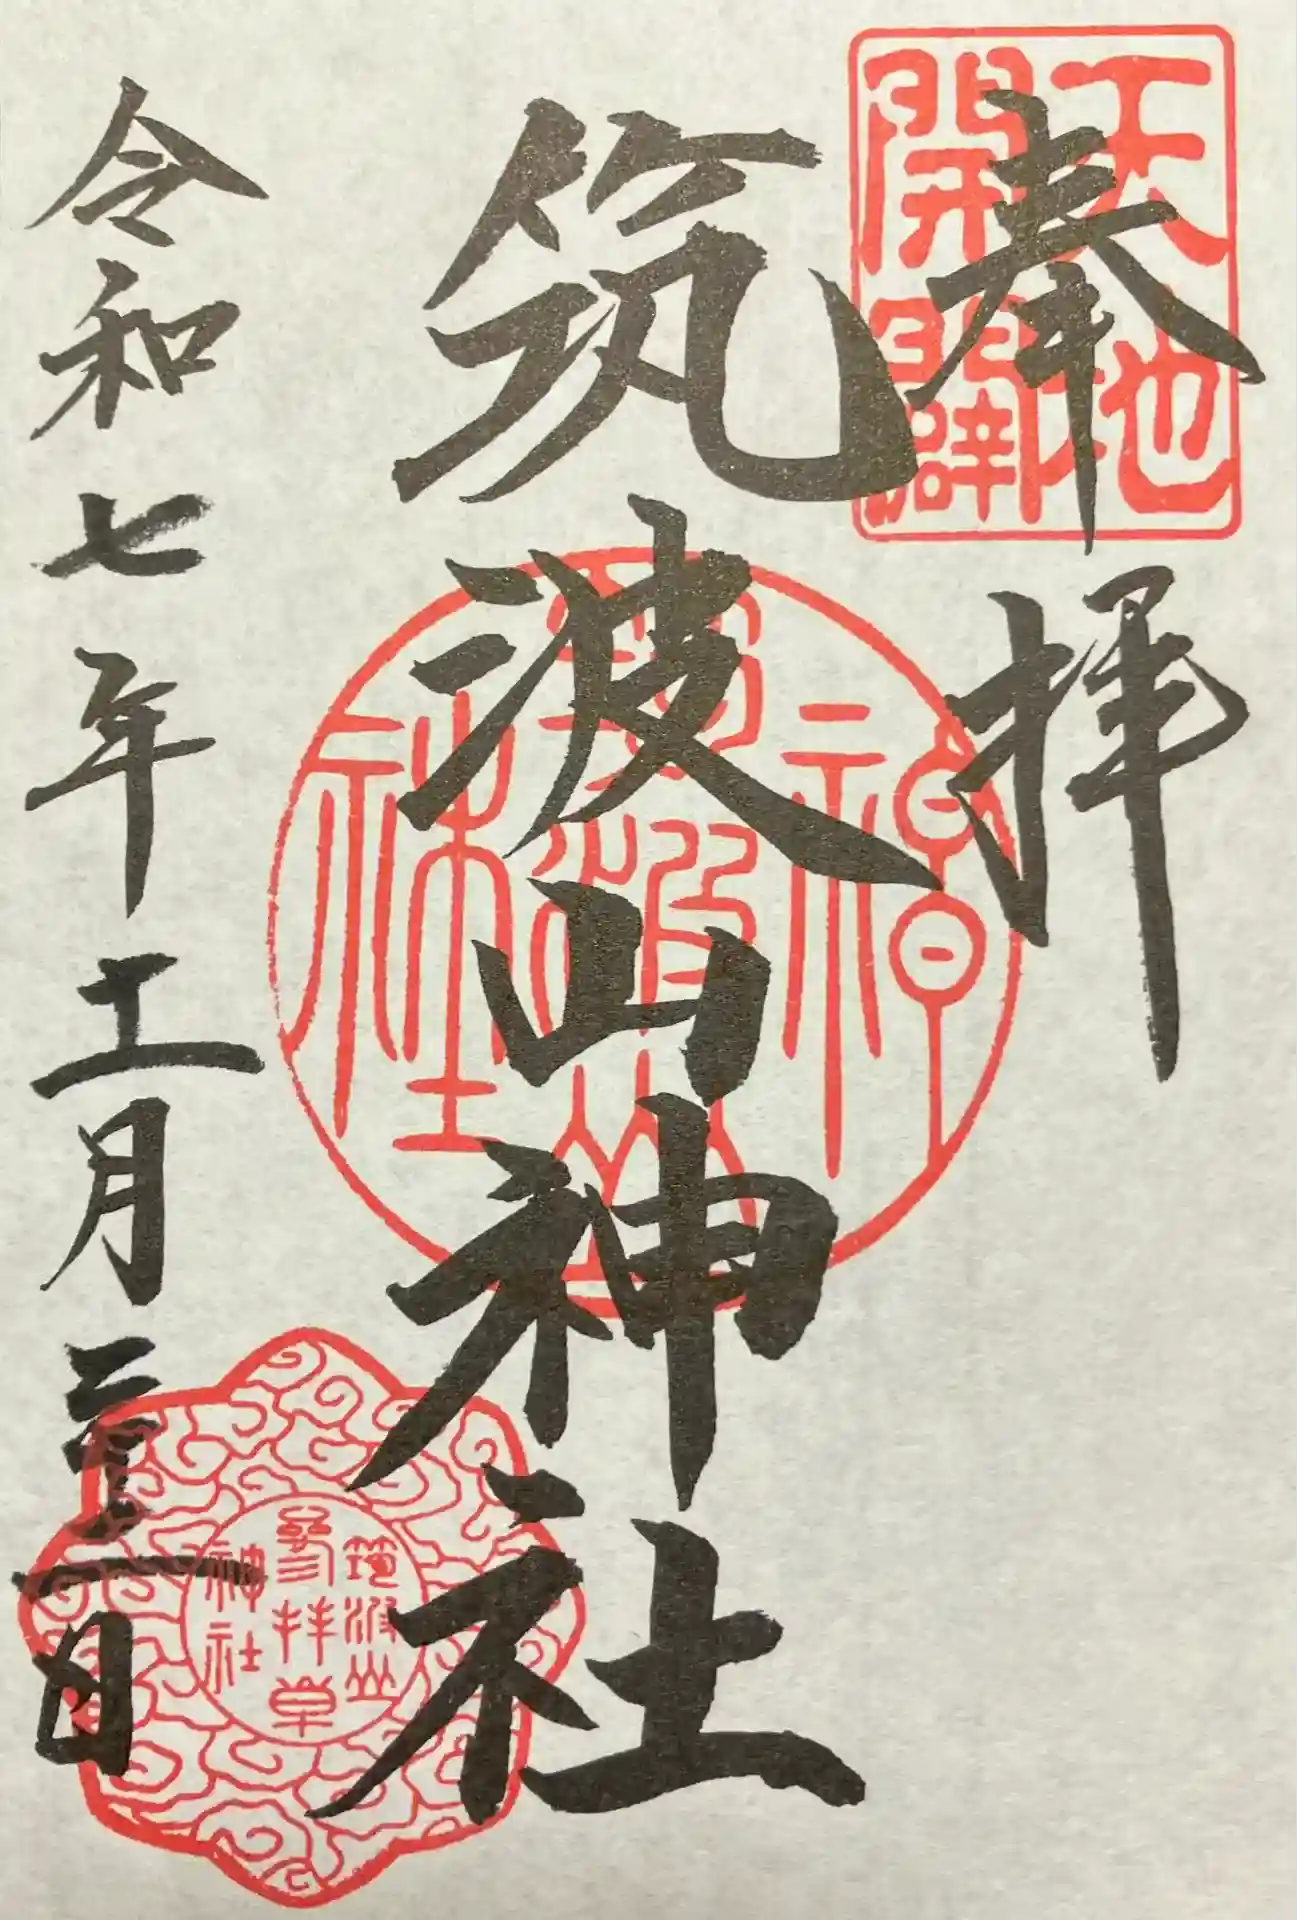 奉拝
天地開闢
筑波山神社
筑波山神社
令和七年十一月二十二日
筑波山
参拝章
神社